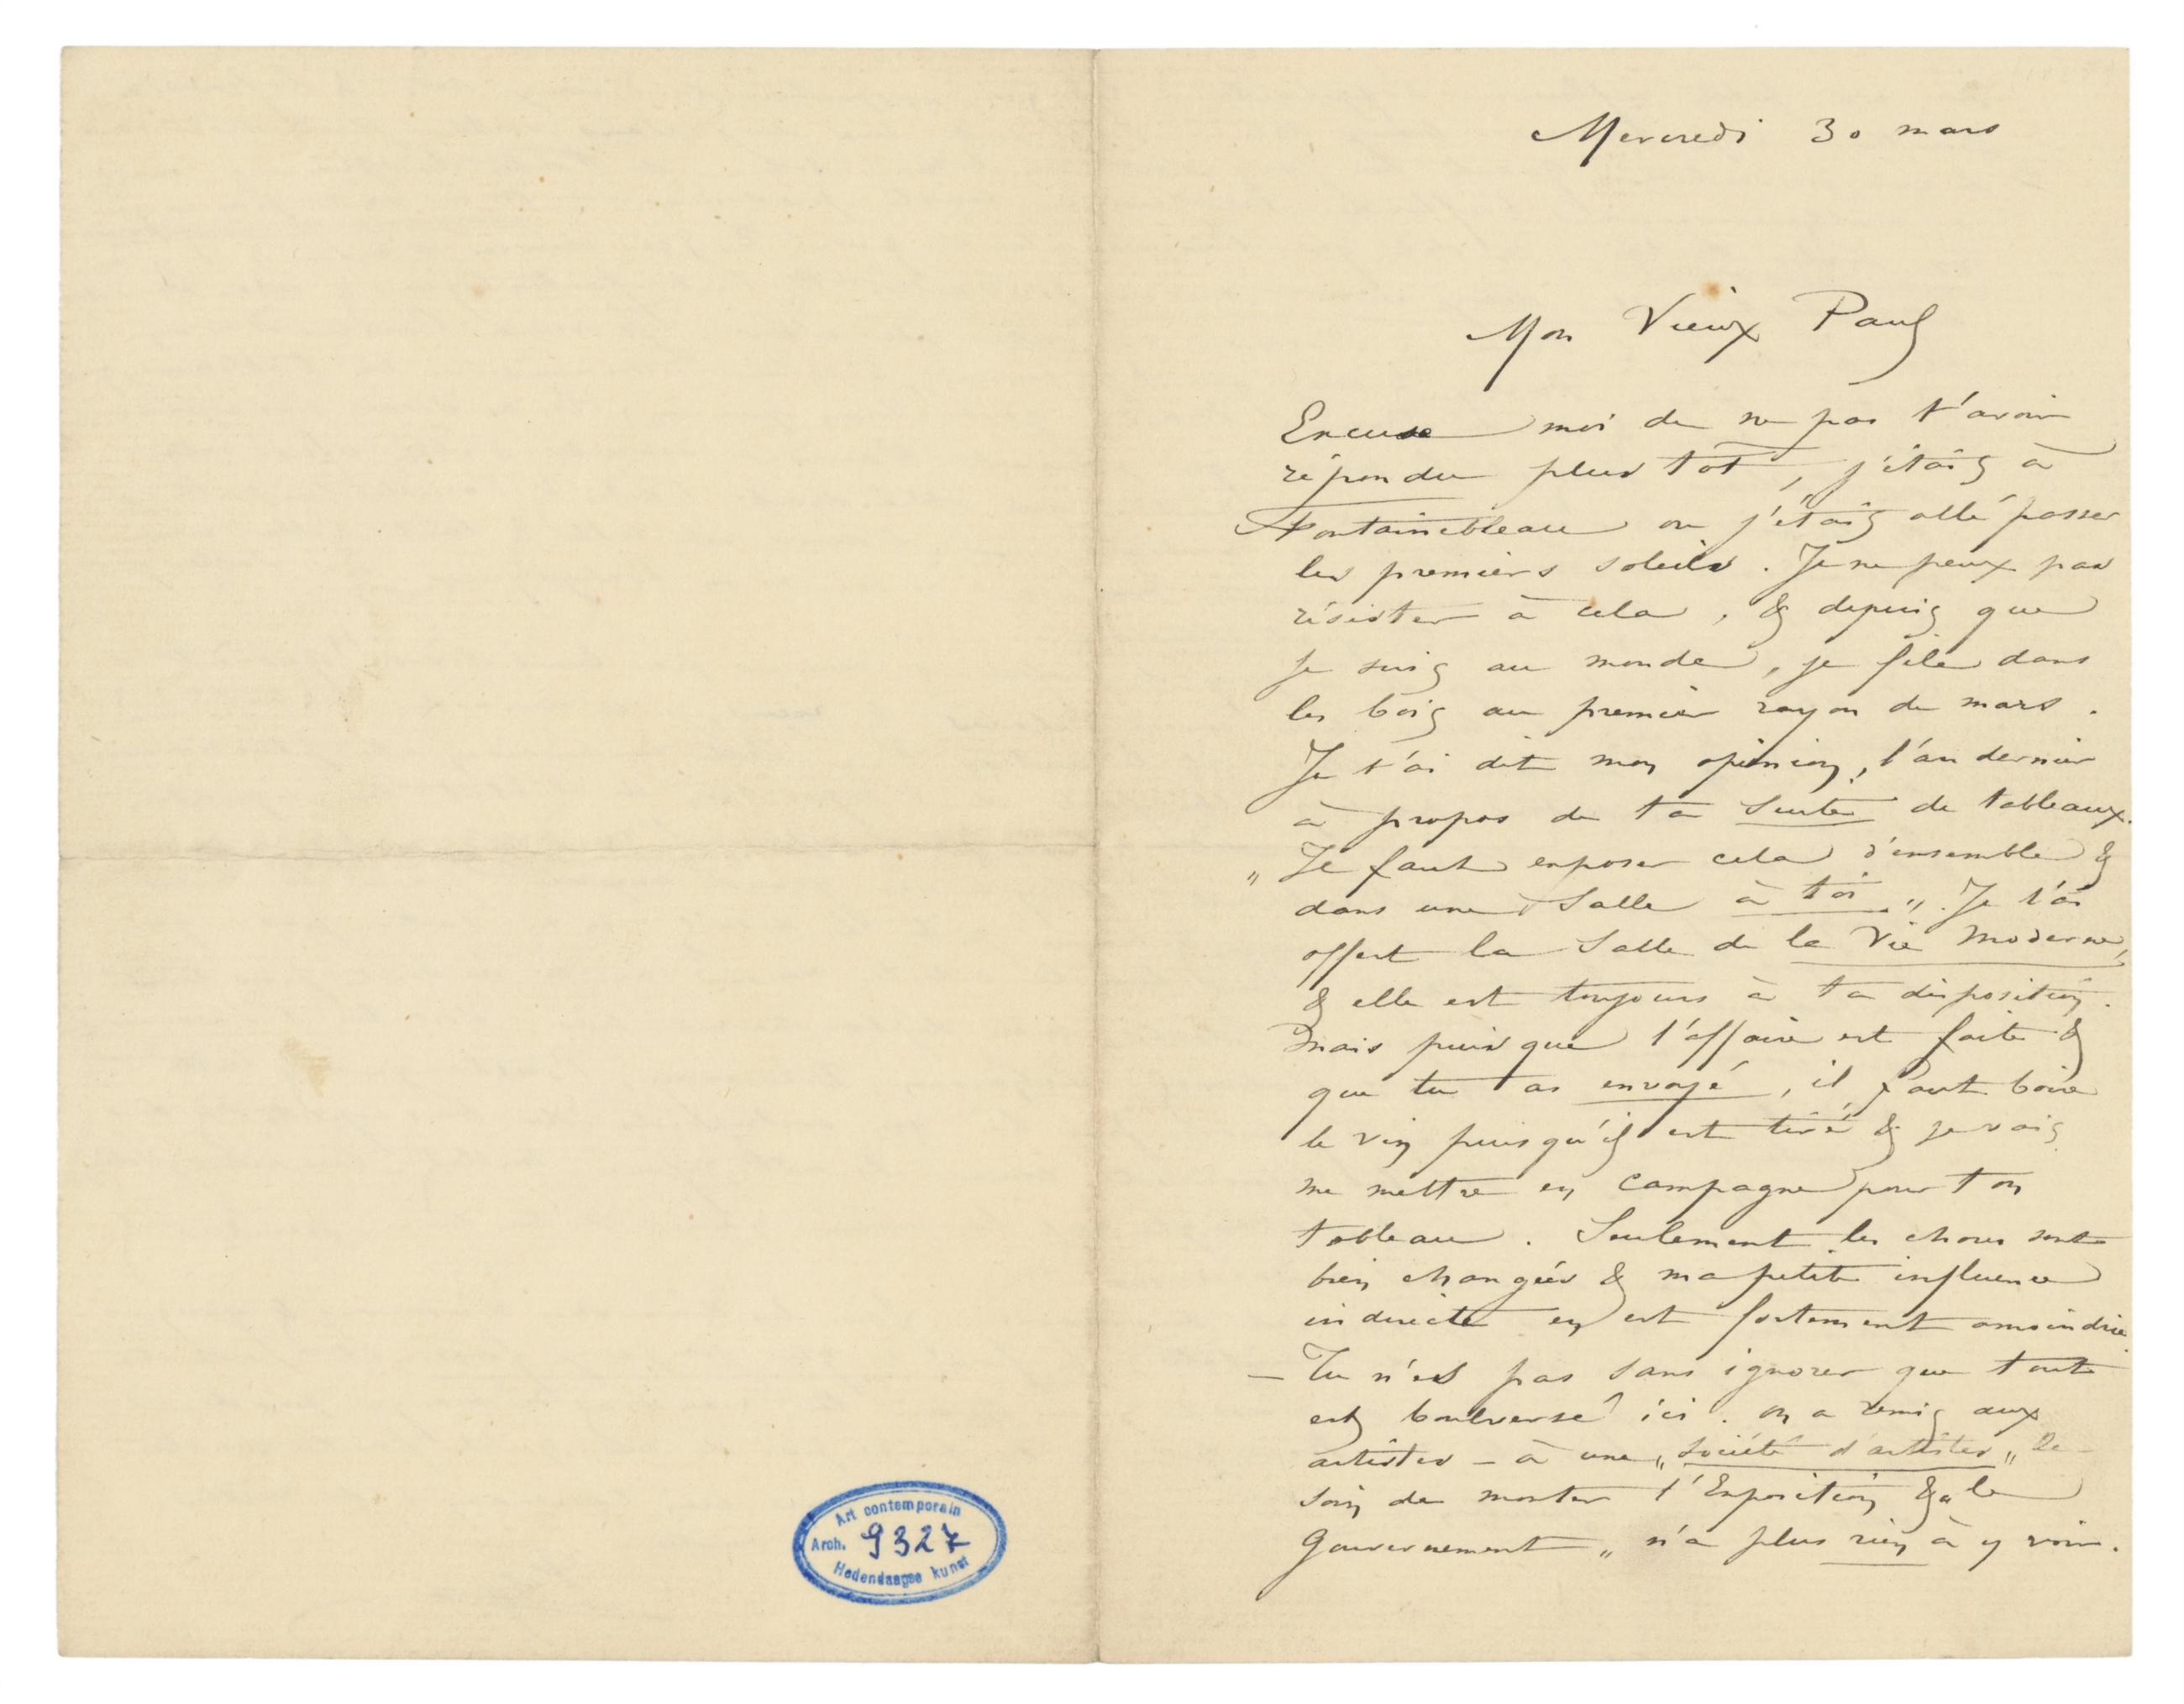 Art contemporain
Arch. 9327
Hedendaagse kunst
Mercredi 30 mars
Mon Vieux Paul
Excuse moi de ne pas t'avoir
répondu plus tôt, j'étais à
Fontainebleau ou j'étais allé passer
les premiers soleils. Je ne peux pas
résister à cela, & depuis que
je suis au monde, je file dans
les bois au premier rayon de mars.
Je t'ai dit mon opinion, l'an dernier
à propos de ta Suite de tableaux.
„ Il faut exposer cela d'ensemble &
dans une Salle à toi „. Je t'ai
offert la Salle de la Vie Moderne,
& elle est toujours à ta disposition.
Mais puis que l'affaire est faite &
que tu as envoyé, il faut boire
le vin puisqu'il est tiré & je vais
me mettre en campagne pour ton
tableau. Seulement les choses sont
bien changées & ma petite influence
indirecte en est fortement amoindrie
— Tu n'es pas sans ignorer que tout
est boulversé ici. on a remis aux
artistes — à une „ Société d'artistes „ le
soin de monter l'Exposition & „ le
Gouvernement „ n'a plus rien à y voir.